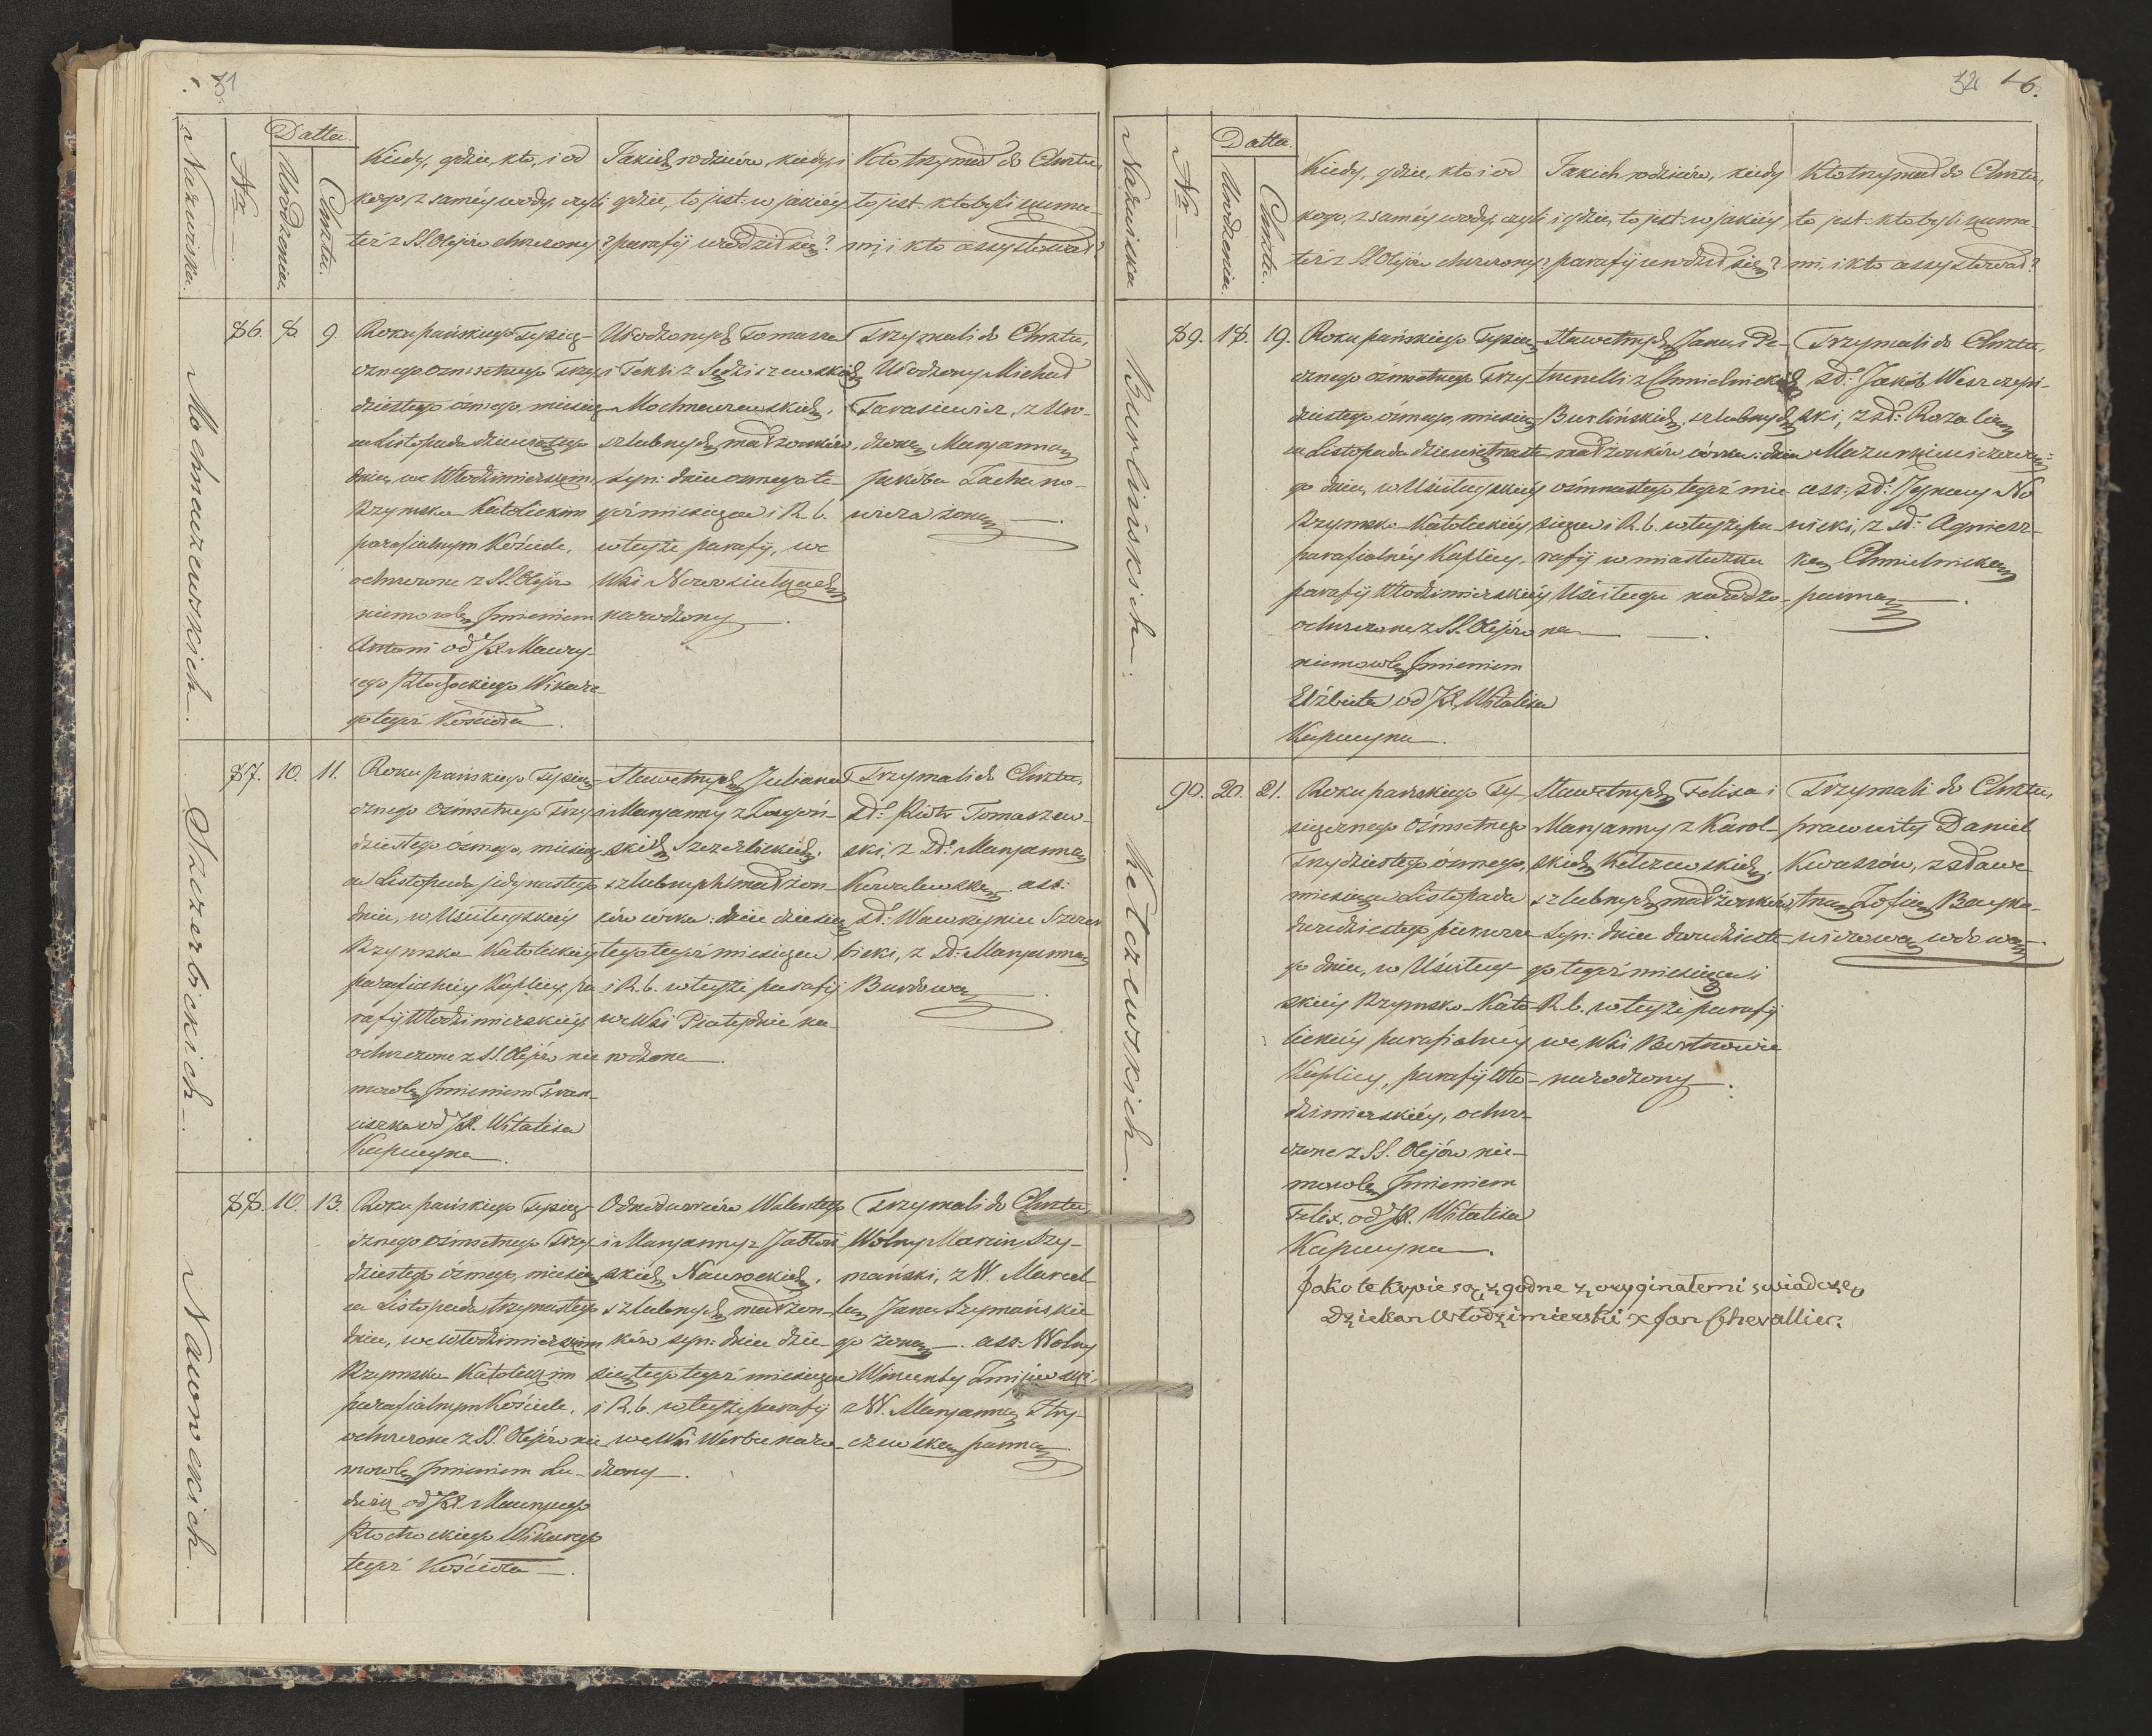 31
Datta.
Nazwiska.
Nr
Urodzenia.
Chrztu.
Kiedy, gdzie, kto, i od
kogo, z saméy wody, czyli
téż z SS. Olejów chrzczony?
Jakich rodziców, kiedy, i
gdzie, to jest: w jakiéy
parafij urodził się?
Kto trzymał do Chrztu,
to jest: kto byli kuma-
mi, i kto assystował?
Mochnaczewskich.
86. 8. 9.
Roku pańskiego Tysięc-
cznego ośmsetnego Trzy-
dziestego ósmego, miesią-
ca Listopada dziewiątego
dnia, we Włodzimierskim
Rzymsko Katolickim
parafialnym Kościele,
ochrzczone z SS. Olejów
niemowlę Jmieniem
Antoni od JX. Maury-
cego Kłochockiego Wikare-
go tegoż Kościoła.
Urodzonych Tomasza
i Tekli z Sędziszewskich
Mochnaczewskich,
szlubnych małżonków,
syn: dnia osmego te-
goż miesiąca i R. b.
w tejże parafij, we
Wsi Nowosiułkach
narodzony.
Trzymali do Chrztu,
Urodzony Michał
Tarasiewicz, z Uro-
dzoną Maryanną
Jakóba Lachno-
wicza żoną.
Szczerbickich.
87. 10. 11.
Roku pańskiego Tysią-
cznego ośmsetnego Trzy-
dziestego ósmego, miesią-
ca Listopada jedynastego
dnia, w Uściługskiéy
Rzymsko Katolickiéy
parafialnéy Kaplicy, pa-
rafij Włodzimierskiéy,
ochrzczone z SS. Olejów nie-
mowlę Jmieniem Fran-
ciszka od JX. Witalisa
Kapucyna.
Sławetnych Juliana
i Maryanny z Zagór-
skich Szczerbickich,
szlubnych małżon-
ków córka: dnia dziesią-
tego tegoż miesiąca
i R. b. w tejże parafij
we Wsi Piatydnie na-
rodzona.
Trzymali do Chrztu,
Sł: Piotr Tomaszew-
ski, z Sł: Maryanną
Kowalewską. ass:
sł: Wawrzyniec Szczer-
bicki, z Sł: Maryanną
Burdową.
Nawrockich.
88. 10. 13.
Roku pańskiego Tysią-
cznego ośmsetnego Trzy-
dziestego ósmego, miesią-
ca Listopada trzynastego
dnia, we Włodzimierskim
Rzymsko Katolickim
parafialnym Kościele,
ochrzczone z SS. Olejów nie-
mowlę Jmieniem Lu-
dwik od JX. Maurycego
Kłochockiego Wikarego
tegoż Kościoła.
Odnodworców Walentego
i Maryanny z Jabłoń-
skich Nawrockich,
szlubnych małżon-
ków syn: dnia dzie-
siątego tegoż miesiąca
i R. b. w tejże parafij
we Wsi Werbie naro-
dzony.
Trzymali do Chrztu,
Wolny Marcin Szy-
mański, z W. Marcel-
lą Jana Szymańskie-
go żoną. ass: Wolny
Wincenty Żmijewski,
z W. Maryanną Hry-
czewską panną.
32 16.
Datta.
Nazwiska
Nr
Urodzenia.
Chrztu.
Kiedy, gdzie, kto i od
kogo, z saméy wody, czyli
téż z SS. Olejów chrzczony?
Jakich rodziców, kiedy
i gdzie, to jest: w jakiéy
parafij urodził się?
Kto trzymał do Chrztu,
to jest: kto byli kuma-
mi, i kto assystował?
Burlińskich.
89. 18. 19.
Roku pańskiego Tysią-
cznego ośmsetnego Trzy-
dziestego ósmego, miesią-
ca Listopada dziewiętnaste-
go dnia, w Uściługskiéy
Rzymsko-Katolickiéy
parafialnéy Kaplicy,
parafij Włodzimierskiéy
ochrzczone z SS. Olejów
niemowlę Jmieniem
Elżbieta od JX. Witalisa
Kapucyna.
Sławetnych Jana i Pe-
tronelli z Chmielnickich
Burlińskich, szlubnych
małżonków córka: dnia
ośmnastego tegoż mie-
siąca i R. b. w tejże pa-
rafij w miasteczku
Uściługu narodzo-
na.
Trzymali do Chrztu,
sł: Jakób Weszczyń-
ski, z sł: Rozalią
Mazurkiewiczową.
ass: sł: Jgnacy No-
wicki, z sł: Agniesz-
ką Chmielnicką
panną.
Kełczewskich.
90. 20. 21.
Roku pańskiego Ty-
siącznego Ośmsetnego
Trzydziestego ósmego,
miesiąca Listopada
dwudziestego pierwsze-
go dnia, w Uściług-
skiéy Rzymsko-Kato-
lickiéy parafialnéy
Kaplicy, parafij Wło-
dzimierskiéy, ochrz-
czone z SS. Olejów nie-
mowlę Jmieniem
Felix. od JX. Witalisa
Kapucyna.
Sławetnych Felixa i
Maryanny z Karol-
skich Kełczewskich,
szlubnych małżonków,
syn: dnia dwudzieste-
go tegoż miesiąca i
R. b. w tejże parafij
we Wsi Bortnowie
narodzony.
Trzymali do Chrztu,
pracowity Daniel
Kwaszów, z sławe-
tną Zofią Bayko-
wiczową wdową.
Jako te kopie są zgodne z oryginałemi swiadczę
Dziekan Włodzimierski X Jan Chevallier.